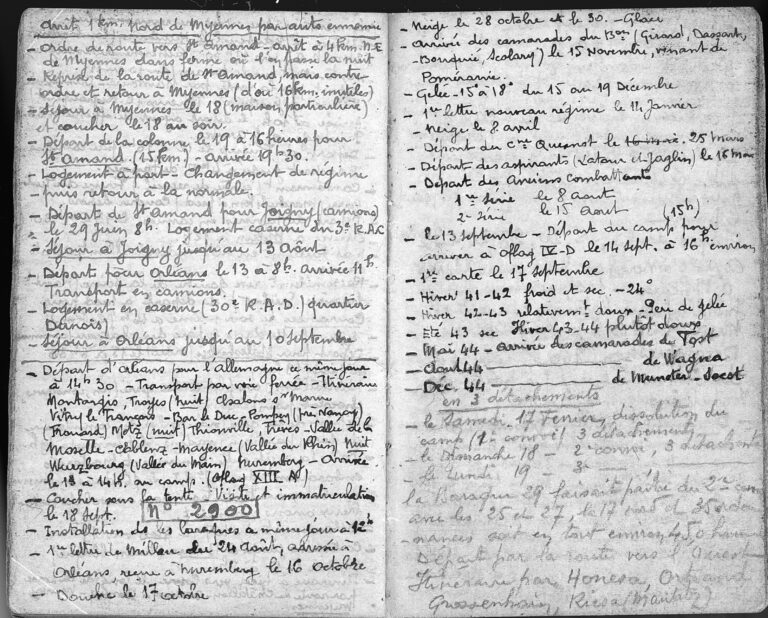 Arrêt 1 km. nord de Myennes par auto ennemie
- Ordre de route vers St amand - arrêt à 4 km. N.E
de Myennes dans ferme où l'on passe la nuit
- Reprise de la route de St Amand, mais contre
ordre et retour à Myennes (d'où 16 km. inutiles)
- Séjour à Myennes le 18 (maison particulière)
et coucher le 18 au soir.
- Départ de la colonne le 19 à 16 heures pour
St Amand. (15 km.) - Arrivée 19h30.
- Logement à part - Changement de régime
- puis retour à la normale.
- Départ de St Amand pour Joigny (camions)
le 29 juin 8h. Logement caserne du 3e R.A.C
- Séjour à Joigny jusqu'au 13 Août
- Départ pour Orléans le 13 à 8h. arrivée 11h
Transport en camions.
- Logement en caserne (30e R.A.D.) quartier
Dunois)
- Séjour à Orléans jusqu'au 10 Septembre
- Départ d'Orléans pour l'Allemagne ce même jour
à 14h30 - Transport par voie ferrée - Itinéraire
Montargis, Troyes (nuit) Chalons s/ Marne
Vitry le François - Bar le Duc, Pompey (près Nancy)
(Frouard) Metz (nuit) Thionville, Trèves - Vallée de la
Moselle - Coblenz - Mayence (Vallée du Rhin) Nuit
Wurzbourg (Vallée du Main) Nuremberg - Arrivée
le 13 à 14h. au camp. (Oflag XIII A)
- Coucher sous la tente. Visite et immatriculation
le 18 Sept. No 2900
- Installation ds les baraques ce même jour à 12h
- 1re lettre de Millau du 24 Août, adressée à
Orléans reçue à Nuremberg le 16 octobre
- Douche le 17 octobre
- Neige le 28 octobre et le 30. - Glace
- Arrivée des camarades du 13 (Girard, Dassart,
Bouquié, Scolary) le 15 Novembre, venant de
Poméranie.
- Gelée - 15° à 18° du 15 au 19 Décembre
- 1re lettre nouveau régime le 14 Janvier
- Neige le 8 avril
- Départ du Cne Quesnot le 16 Mai. 25 Mars
- Départ des aspirants (Latour et Jaglin) le 16 Mai
- Départ des Anciens Combattants
1re Série le 8 Aout
2e Série le 15 Aout (15h)
- le 13 septembre - Départ du camp pour
arriver à Oflag IV-D le 14 sept. à 16h environ
- 1re carte le 17 septembre
- Hiver 41-42 froid et sec. -24°
- Hiver 42-43 relativemt doux - Peu de gelée
- Eté 43 sec Hiver 43-44 plutôt doux
- Mai 44 - Arrivée des camarades de Tost
- Aout 44 de Wagna
- Dec. 44 de Munster-Soest
en 3 détachements
- le Samedi 17 Fevrier, dissolution du
camp (1er convoi) 3 détachements
- le Dimanche 18 - 2e convoi, 3 détachem
- le Lundi 19 3e
la Baraque 29 faisait partie du 2e con
avec les 25 et 27, le 17 nord et 35 
 soit en tout environ 450 
Départ par la route vers l'Ouest
Itinéraire par Honesa, Ortrand
Grossenhain, Riesa